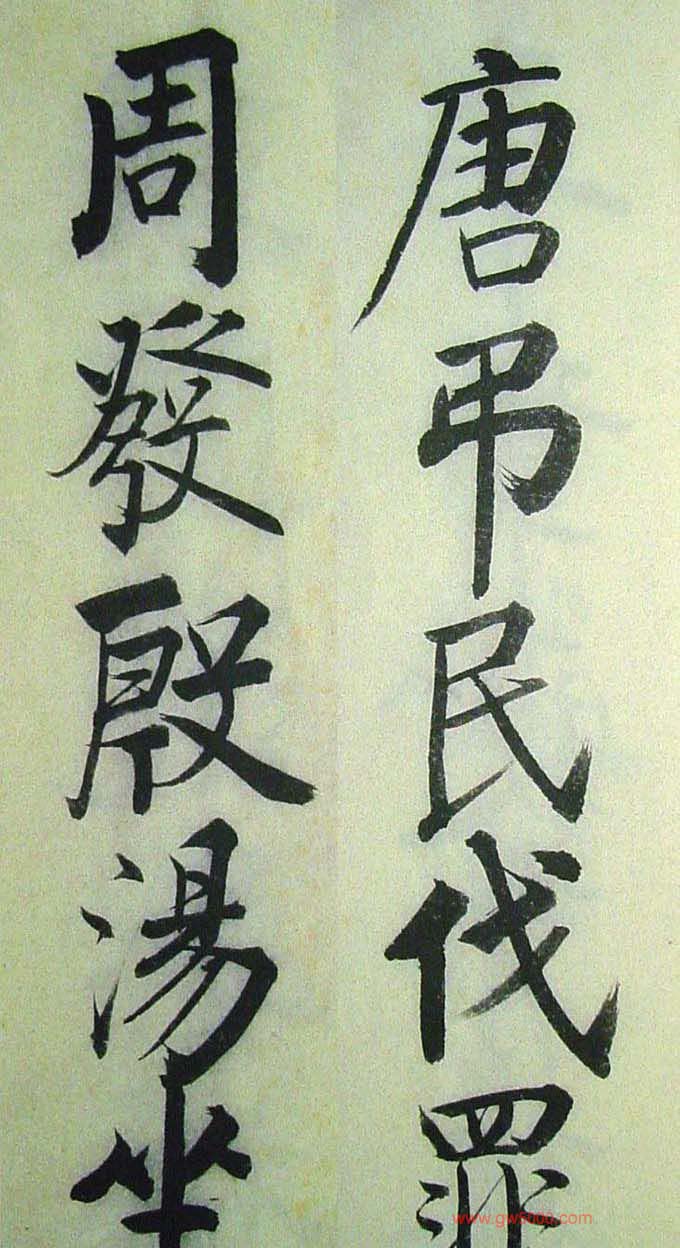 唐弔民伐罪
周發殷湯坐
www.gw5000.com